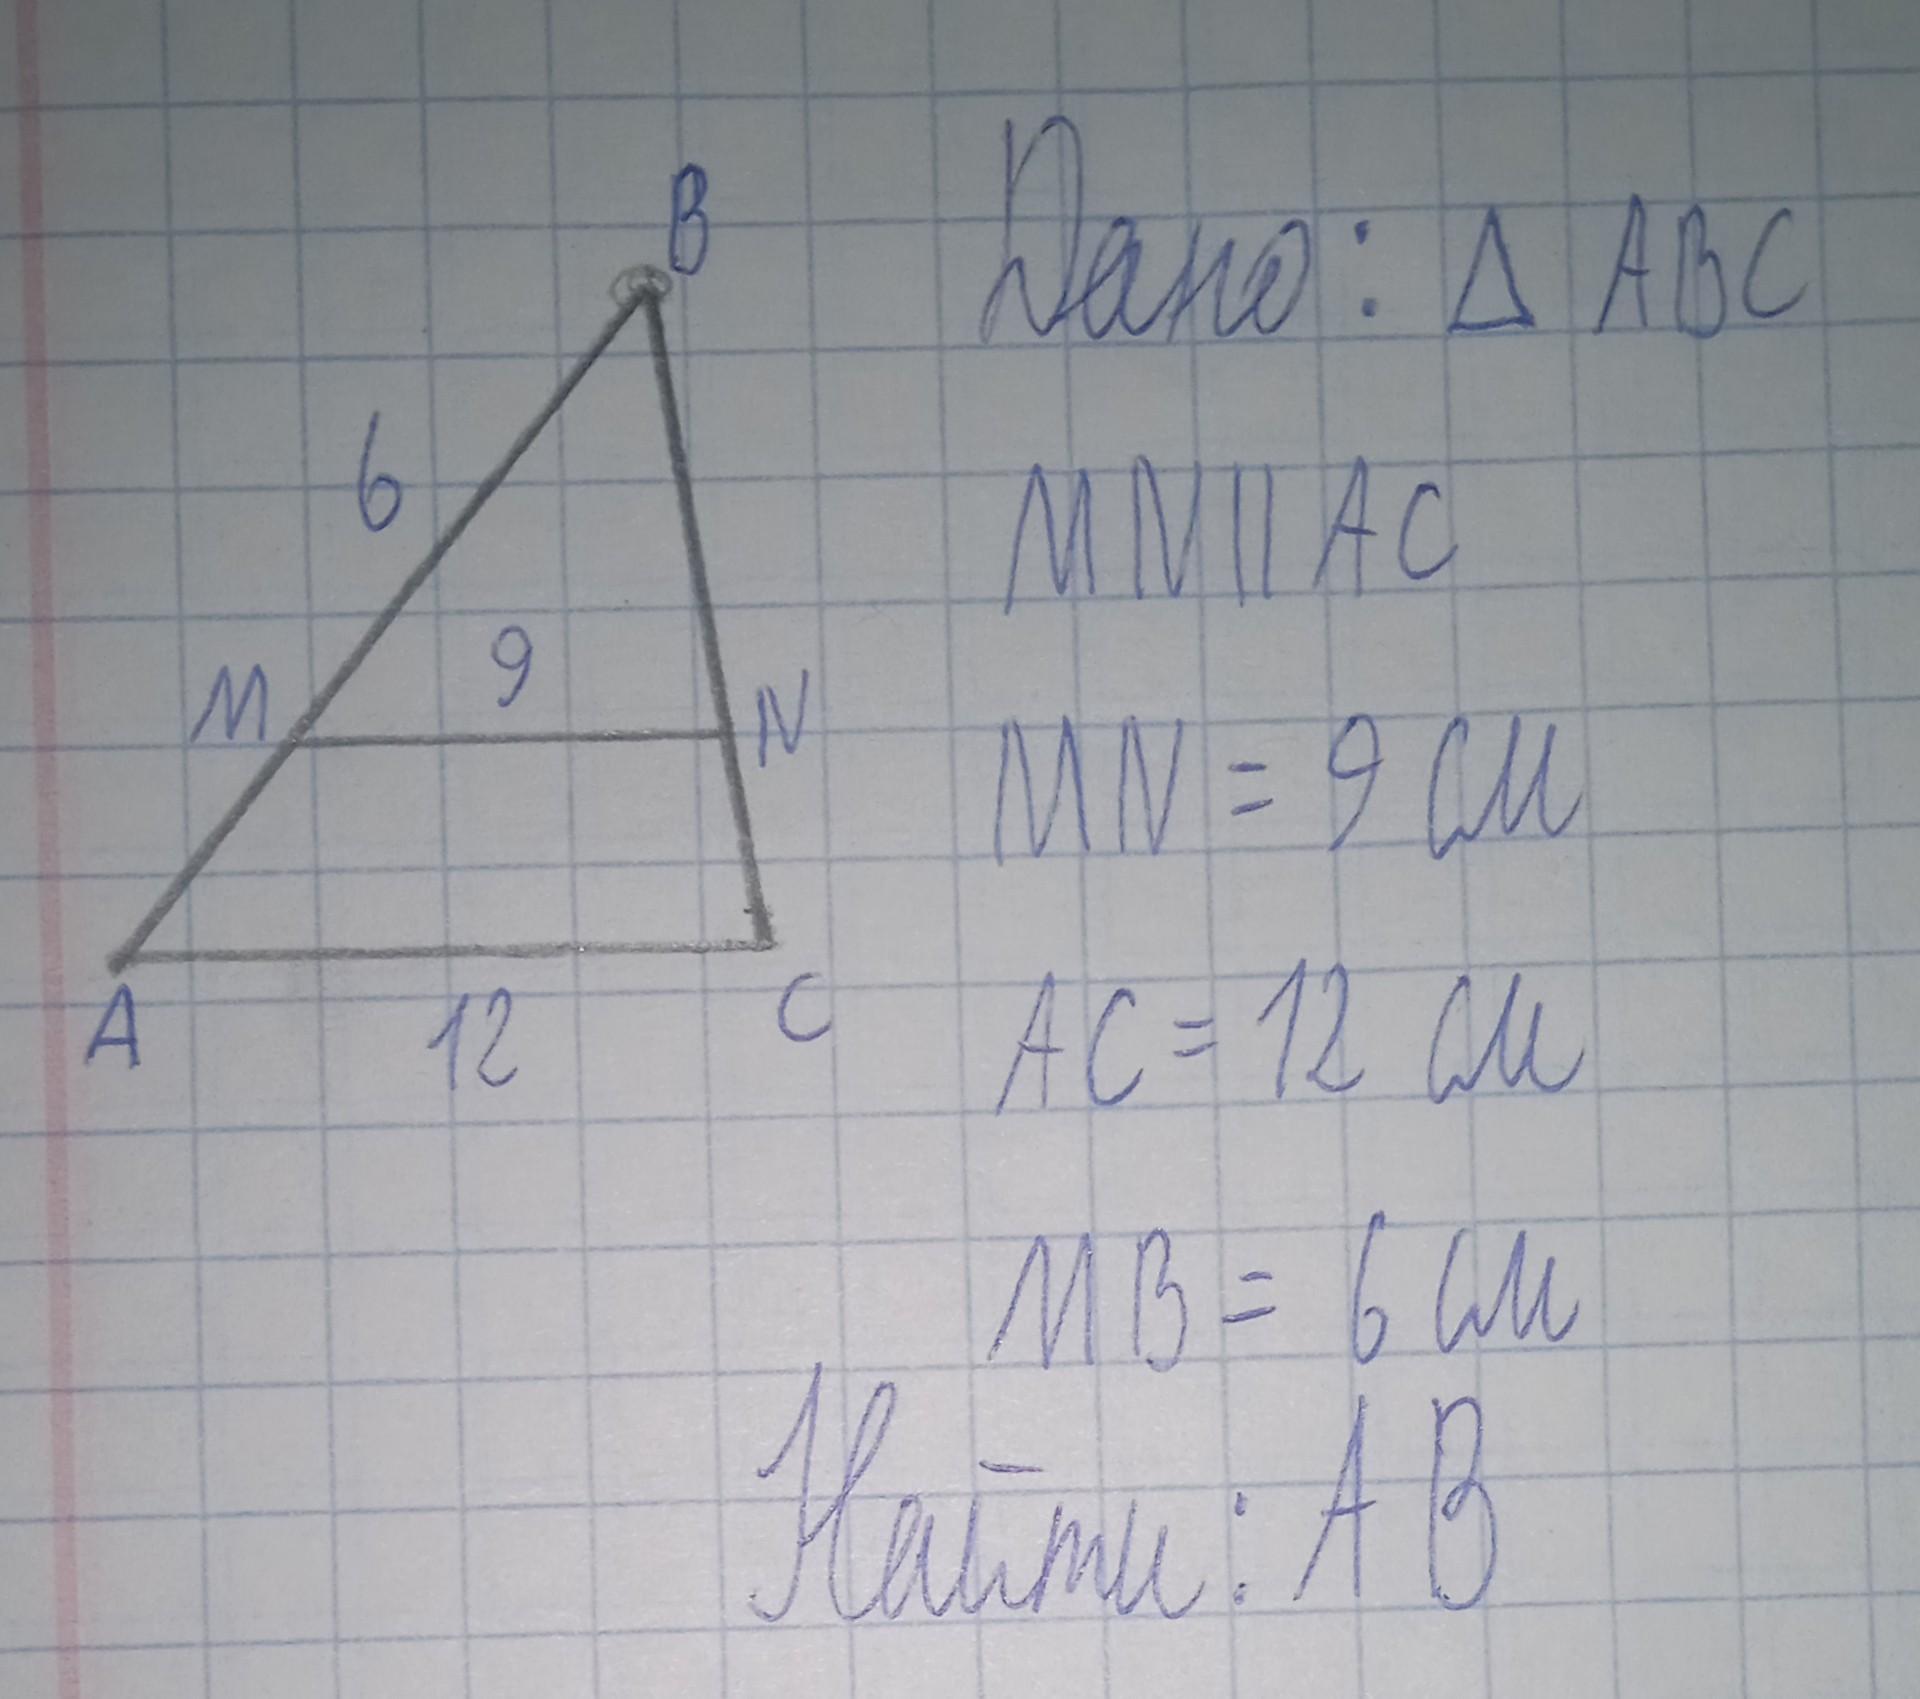 B
6
9
M
N
A
12
C
Дано: Δ ABC
MN || AC
MN = 9 см
AC = 12 см
MB = 6 см
Найти: AB